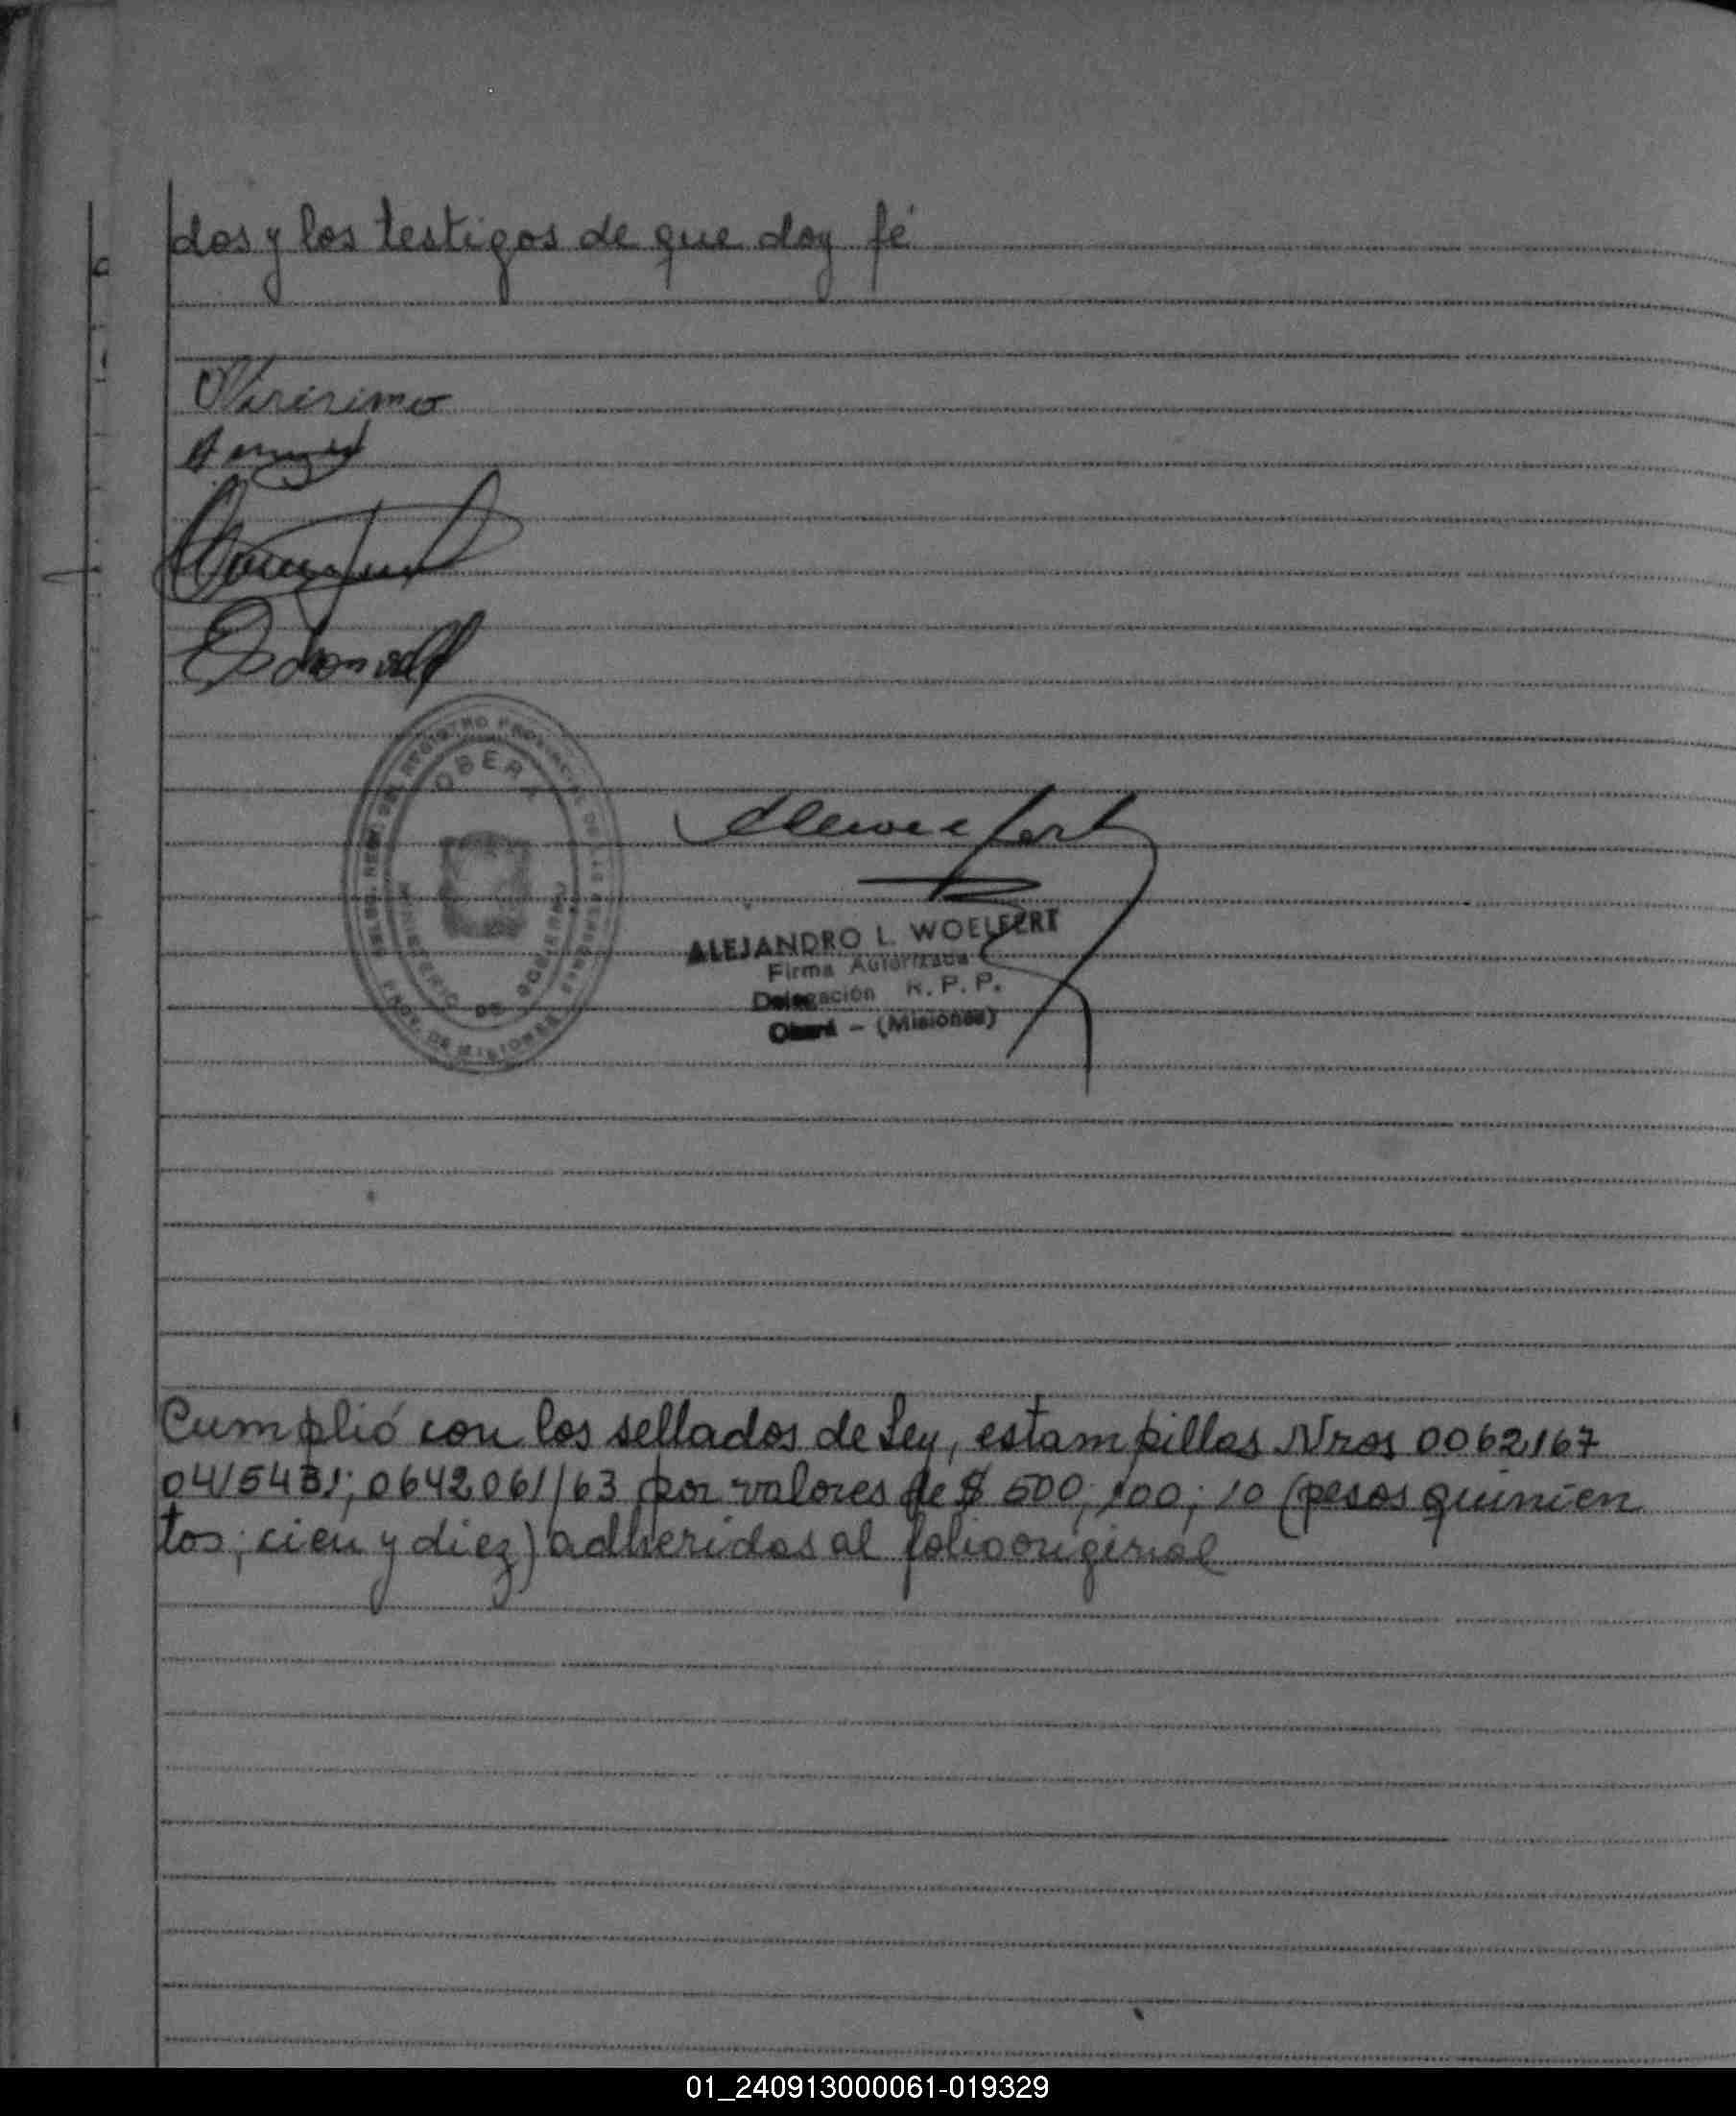 dos y los testigos de que doy fé
OBERA
MINISTERIO DE GOBIERNO
PROV. DE MISIONES
ALEJANDRO L. WOELFERT
Firma Autorizada
Delegación R. P. P.
Oberá - (Misiones)
Cumplió con los sellados de Ley, estampillas Nros 0062167
0415431; 0642061//63 por valores de $ 500; 100; 10 (pesos quinien
tos; cien y diez) adheridas al folio original
01_240913000061-019329